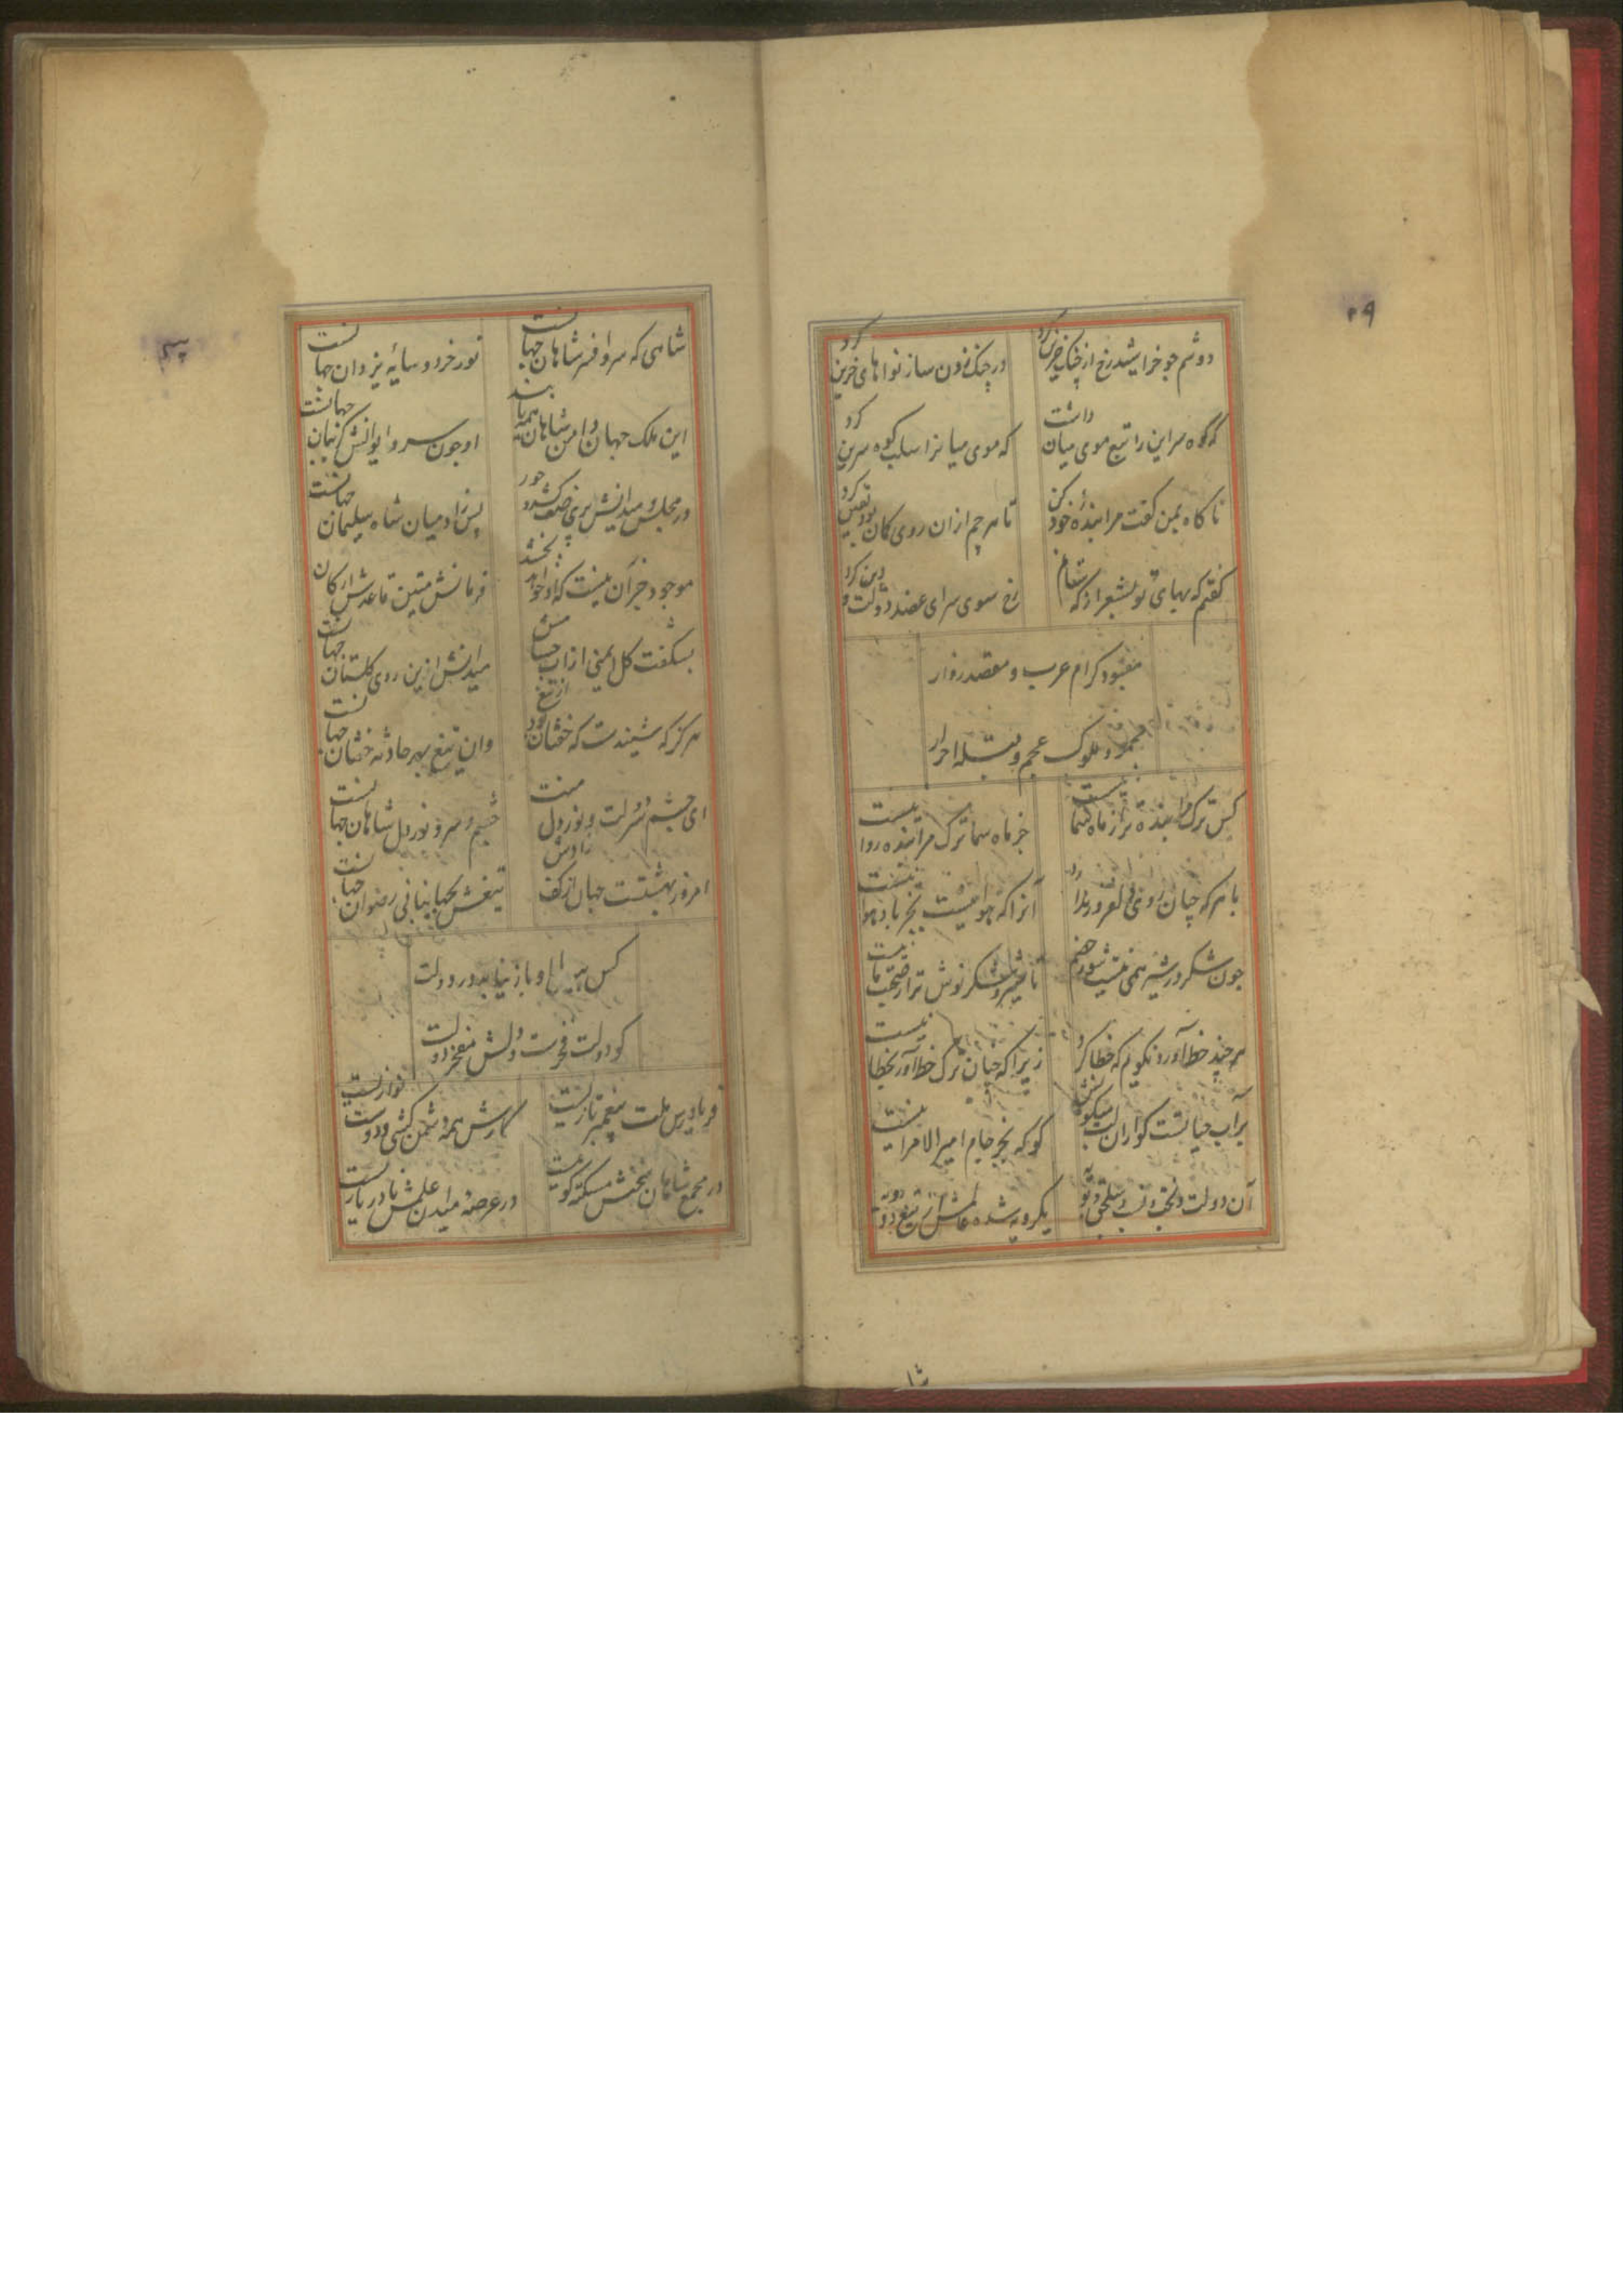 ۲۹
دوشم جو خراشید رخ از چنگ حزین کرد
در چنگ فزون ساز نواهای حزین کرد
که کوه سراین را تبع موی میان داشت
که موی میانرا سلب کوه سرین کرد
ناکاه بمن کفت مرا بنده خود کن
تا هر چم ازان روی کمان بود یقین کرد
کفتم که بهای تو بشعر از که ستانم
رخ سوی سرای عضد دولت و دین کرد
مقصود کرام عرب و مقصد زوار
مخدوم ملوک عجم و قبله احرار
کس ترک مرا بنده تر از ماه سما نیست
جز ماه سما ترک مرا بنده روا نیست
با هر که چنان روی دلفروز ندارد
آنرا که هوا نیست بجز باد هوا نیست
جون شکر و شیر همی نیست شود هم
تا شیر و شکر نوش ترا صحبت ما نیست
هر چند خط آورد نکویم که خطا کرد
زیرا که چنان ترک خط آور بخطا نیست
بر آب حیاتست کواران لب میکونش
کو که بجز جام امیر الامرا نیست
آن دولت و بخت و نسب و سلجق دو تو به
یکرویه شده عالمش از تیغ دو رویه
شا
شاهی که سر و افسر شاهان جهانست
نور خرد و سایه یزدان جهانست
این ملک جهان دامن شاهان همه یابند
او جون سر و ایوانش کریبان جهانست
در مجلس و میدانش پری صف کشد و حور
پس زاد میان شاه سلیمان جهانست
موجود جز آن نیست که او خواهد بخشد
فرمانش متین قاعده ارکان جهانست
بشکفت کل ایمنی از آب حسامش
میدانش ازین روی کلستان جهانست
هرکز که شنیدست که خفتان بود از تیغ
وان تیغ بهر حادثه خفتان جهانست
ای چشم و سر لت و نور دل منت
چشم و سر و نور دل شاهان جهانست
امروز بهشتست جهان از کف رادش
تیغش بجهانبانی رضوان جهانست
کس بی او باز نیابد در دولت
کو دولت فخرست و دلش مفخر دولت
فریادرس ملت پیغمبر تازیست
کارش همه دشمن کشی و دوست نوازیست
در مجمع شاهان سخنش مسکته کویست
در عرصه میدان علمش نادر بازیست